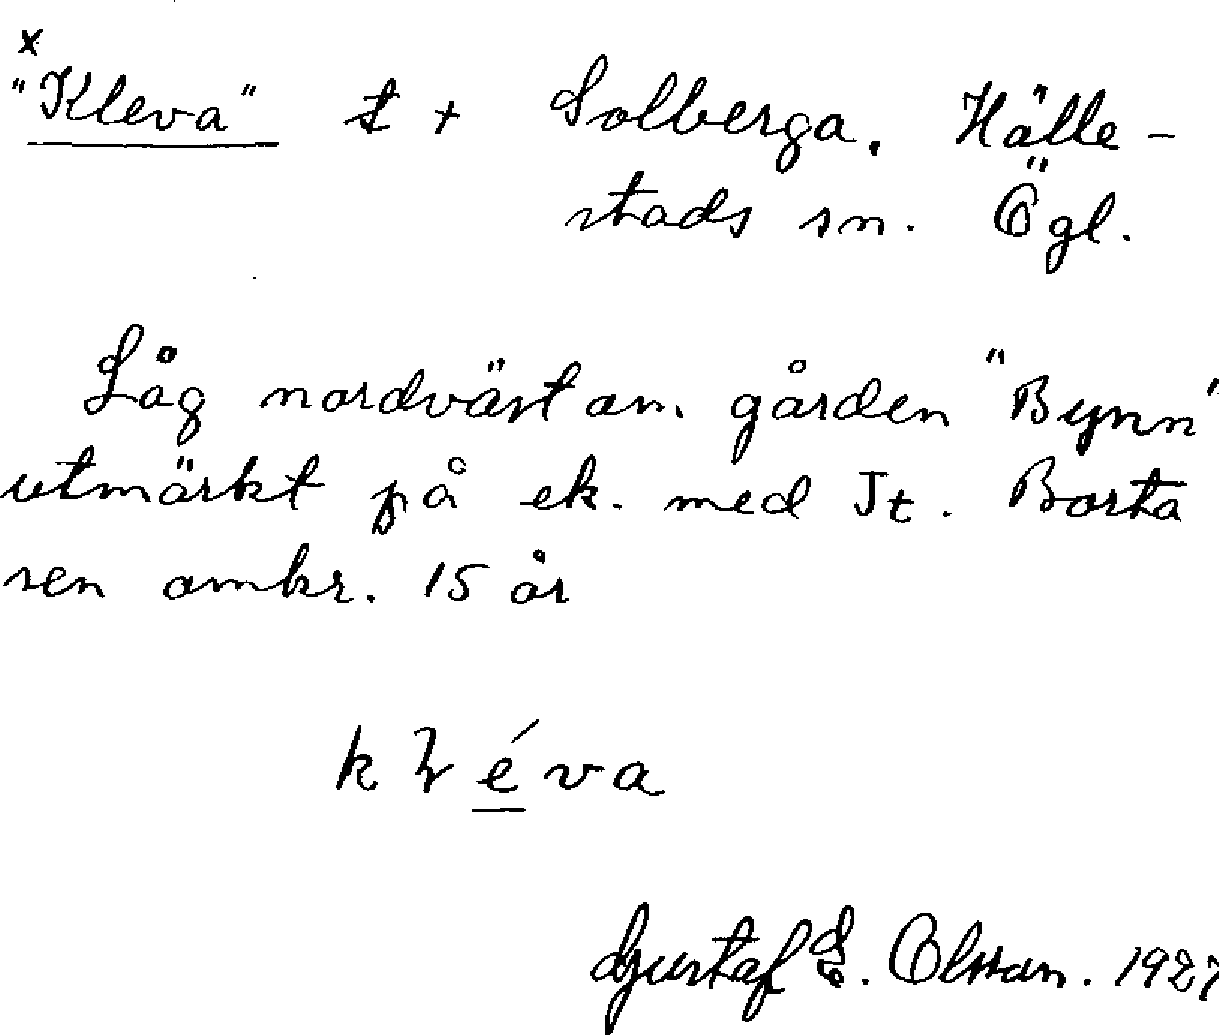 x
"Kleva" t + Solberga. Hälle-
stads sn. Ögl.
Låg nordvästom. gården "Bynn"
utmärkt på ek. med Jt. Borta
sen omkr. 15 år
kléva
Gustaf E. Olsson. 1927